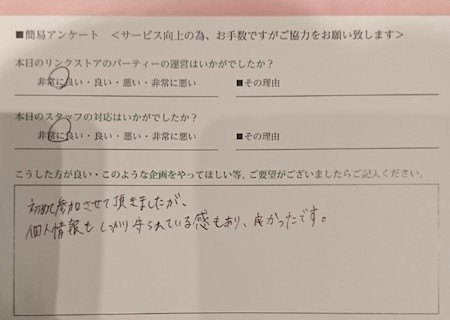 ■簡易アンケート ＜サービス向上の為、お手数ですがご協力をお願い致します＞
本日のリンクストアのパーティーの運営はいかがでしたか？
非常に良い・良い・悪い・非常に悪い ■その理由
本日のスタッフの対応はいかがでしたか？
非常に良い・良い・悪い・非常に悪い ■その理由
こうした方が良い・このような企画をやってほしい等、ご要望がございましたらご記入ください。
初めて参加させて頂きましたが、
個人情報もしっかり守られている感もあり、良かったです。